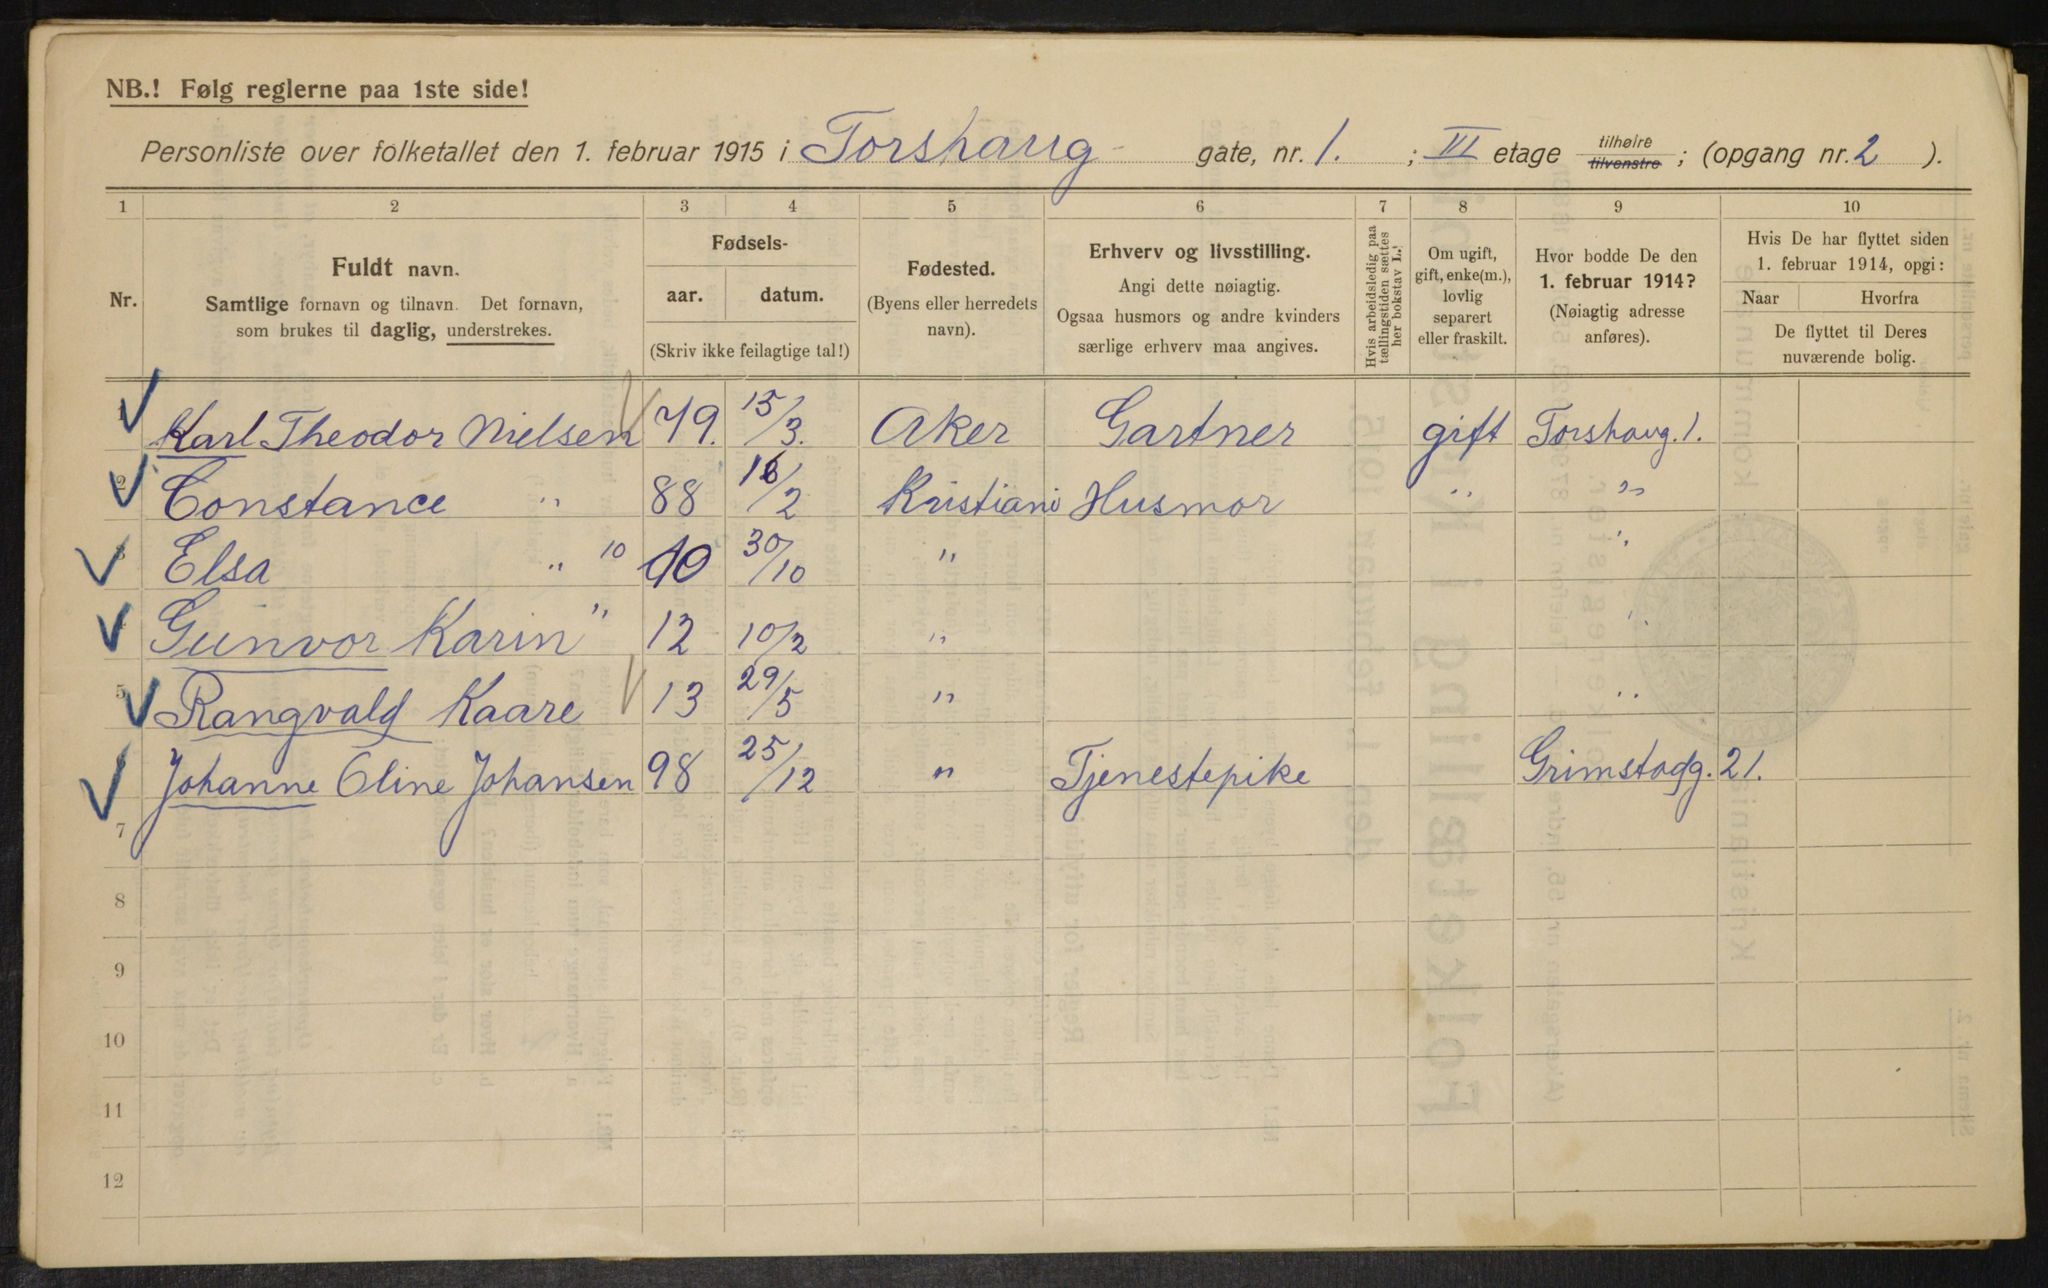 NB.! Følg reglerne paa 1ste side!
Personliste over folketallet den 1. februar 1915 i Torshaug gate, nr. 1. ; III etage tilhøire tilvenstre ; (opgang nr. 2 ).
1 2 3 4 5 6 7 8 9 10
Nr.
Fuldt navn.
Samtlige fornavn og tilnavn. Det fornavn,
som brukes til daglig, understrekes.
Fødsels-
aar. datum.
(Skriv ikke feilagtige tal!)
Fødested.
(Byens eller herredets
navn).
Erhverv og livsstilling.
Angi dette nøiagtig.
Ogsaa husmors og andre kvinders
særlige erhverv maa angives.
Hvis arbeidsledig paa
tællingstiden sættes
her bokstav L!
Om ugift,
gift, enke(m.),
lovlig
separert
eller fraskilt.
Hvor bodde De den
1. februar 1914?
(Nøiagtig adresse
anføres).
Hvis De har flyttet siden
1. februar 1914, opgi:
Naar Hvorfra
De flyttet til Deres
nuværende bolig.
1 Karl Theodor Nielsen 79. 15/3. Aker Gartner gift Torshaug. 1.
2 Constance " 88 /2 Kristiani Husmor " "
3 Elsa " 10 10 30/10 " "
4 Gunvor Karin " 12 10/2 " "
5 Rangvald Kaare 13 29/5 " "
6 Johanne Oline Johansen 98 25/12 " Tjenestepike Grimstadg. 21.
7
8
9
10
11
12